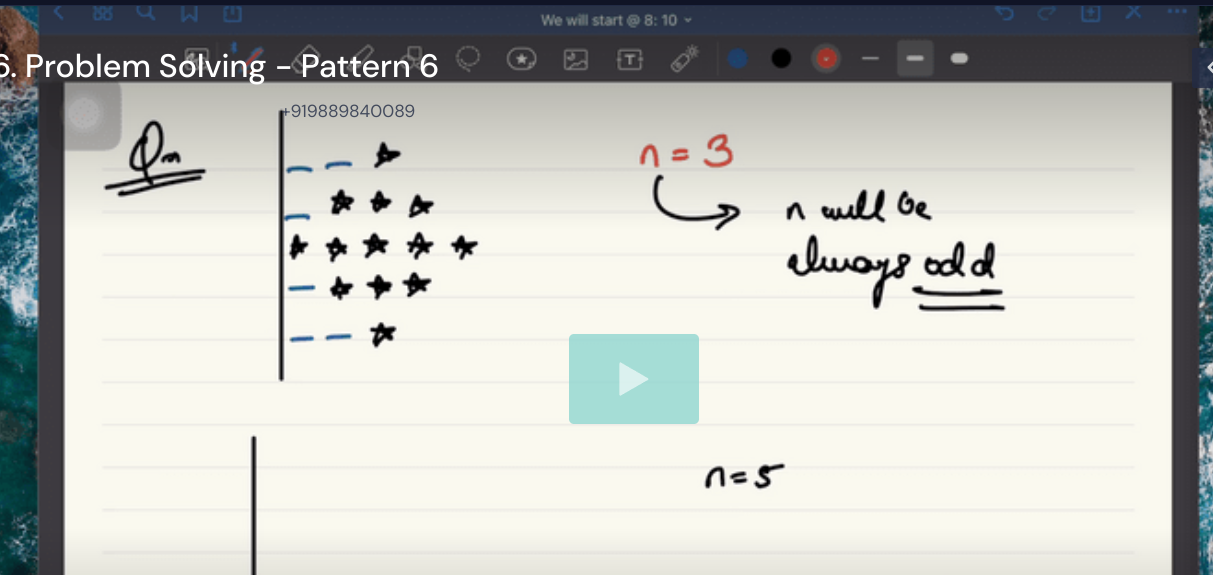 We will start @ 8: 10
6. Problem Solving - Pattern 6
+919889840089
Qn
n = 3
n will be
always odd
n = 5